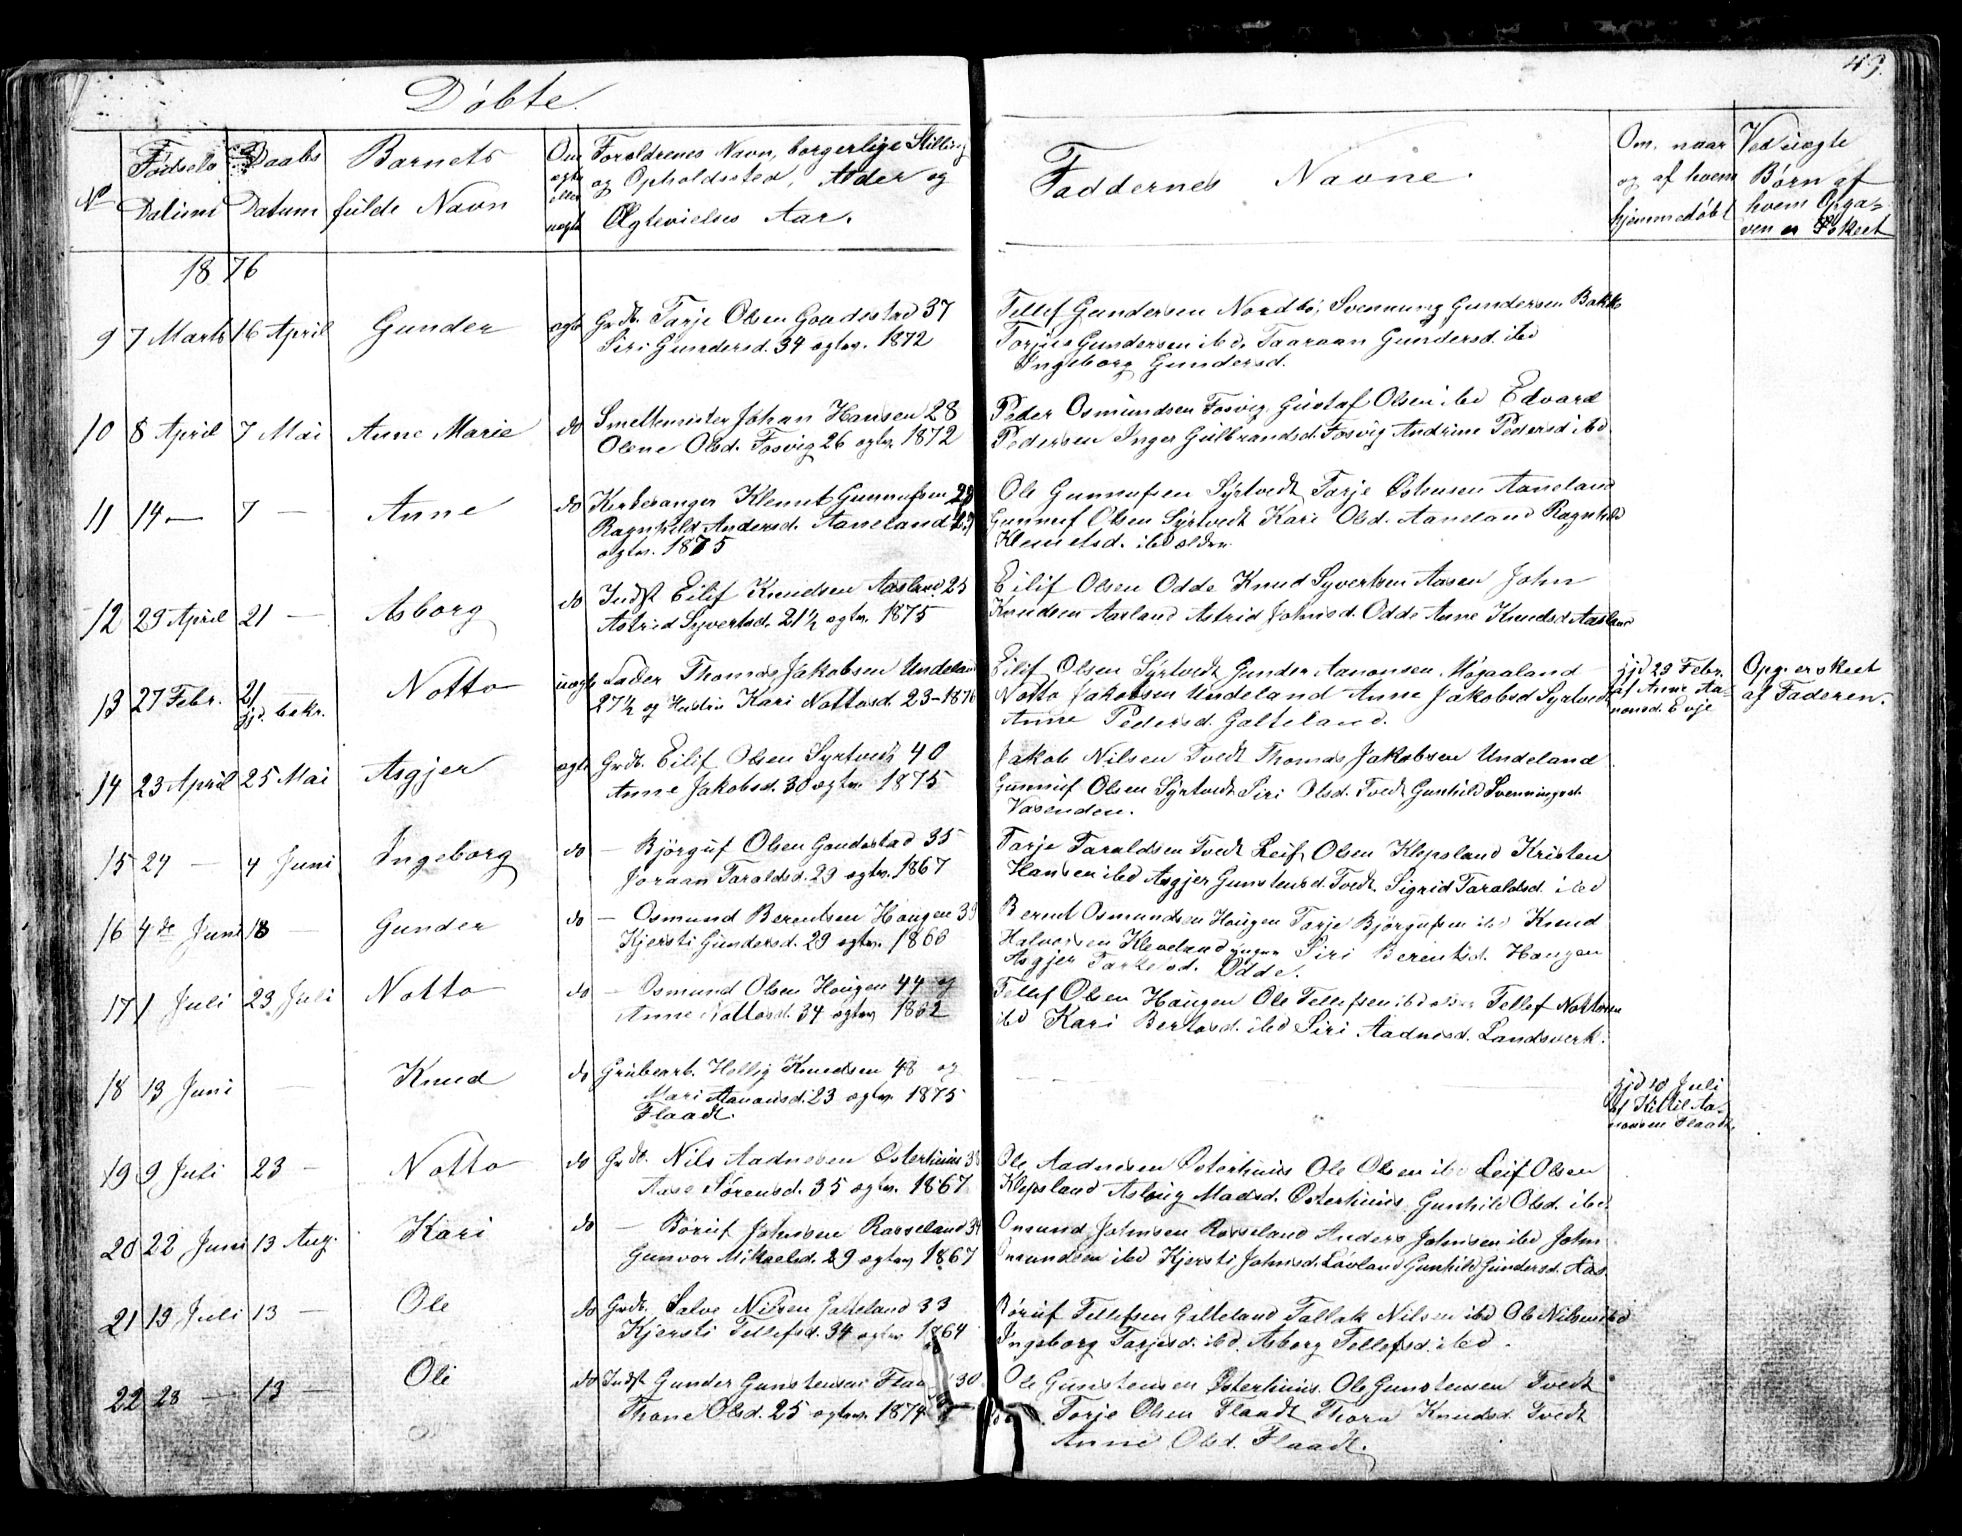 49.
Døbte.
No
Fødsels Datum
Daabs Datum
Barnets fulde Navn
Om ægte eller uægte
Forældrenes Navn, borgerlige Stilling
og Opholdssted, Alder og
Ægtevielses Aar.
Faddernes Navne.
Om, naar
og af hvem
hjemmedøbt
Ved uægte
Børn af
hvem Opga-
ven er skeet
1876
9 7 Marts 16 April Gunder ægte Grdb. Tarje Olsen Gaudestad 37
Siri Gundersd. 34 ægtev. 1872
Tellef Gundersen Nordbø, Svennung Gundersen Bakke
Torjus Gundersen ibd. Taaraan Gundersd. ibd
Ingeborg Gundersd.
10 8 April 7 Mai Anne Marie do Smeltemester Johan Hansen 28
Olene Olsd. Fosvig 26 ægtev. 1872
Peder Osmundsen Fosvig Gustaf Olsen ibd Edvard
Pedersen Inger Gulbrandsd. Fosvig Andrine Pedersd ibd
11 14 — 7 — Anne do Kirkesanger Klemet Gunnufsen 28
Ragnhild Andersd. Aaneland
ægtev. 1875
Ole Gunnufsen Syrtvedt Tarje Aaneland
Gunnuf Olsen Syrtvedt Kari Olsd. Aaneland Ragnhild
Klemetsd. ibd ældre
12 29 April 21 — Asborg do Indst Eilif Knudsen Aasland 25
Astrid Syvertsd. 21½ ægtev. 1875
Eilif Olsen Odde Knud Syvertsen Aasen John
Knudsen Aasland Astrid Johnsd. Odde Anne Knudsd Aasland
13 27 Febr. 21/ bekr. Notto uægte Thomas Jakobsen Undeland
27½ og Kari Nottosd. 23 - 1876
Eilif Olsen Syrtvedt Gunder Aanonsen Høgaaland
Notto Jakobsen Undeland Anne Jakobsd Syrtvedt
Anne Pedersd. Galteland.
hjd 29 Febr.
af Anne Aa-
nonsd. Evje
Opg. er skeet
af Faderen.
14 23 April 25 Mai Asgjer ægte Grdb. Eilif Olsen Syrtvedt 40
Anne Jakobsd. 30 ægtev. 1875
Jakob Nilsen Tvedt Thomas Jakobsen Undeland
Gunnuf Olsen Syrtvedt Siri Olsd. Tvedt Gunhild Svenningsd.
Vasenden.
15 27 — 4 Juni Ingeborg do — Bjørguf Olsen Gaudestad 35
Joraan Taraldsd. 29 ægtev. 1867
Tarje Taraldsen Tvedt Leif Olsen Klepsland Kristen
Hansen ibd Asgjer Gunstensd. Tvedt Sigrid Taraldsd. ibd
16 4de Juni 18 — Gunder do — Osmund Berentsen Haugen 39
Kjersti Gundersd. 29 ægtev. 1866
Bernt Osmundsen Haugen Tarje Bjørgufsen ibd Knud
Halvorsen Kleveland yngre Siri Berentsd. Haugen
Asgjer Tarkelsd. Odde.
17 1 Juli 23 Juli Notto do — Osmund Olsen Haugen 44 og
Anne Nottosd. 34 ægtev 1862
Tellef Olsen Haugen Ole Tellefsen ibd Tellef Nottosen
ibd Kari Bertosd. ibd Siri Aadnesd. Landsverk.
18 13 Juni — Knud do Grubearb. Hellig Knudsen 48 og
Mari Aanonsd. 23 ægtev. 1875
Flaadt.
hjd 10 Juli
af Kittil Aa-
nonsen Flaadt
19 9 Juli 23 — Notto do Grdb. Nils Aadnesen Østerhuus 38
Aase Sørensd. 35 ægtev. 1867
Ole Aadnesen Østerhuus Ole Olsen ibd Leif Olsen
Klepsland Aslaug Madsd. Østerhuus Gunhild Olsd. ibd.
20 22 Juni 13 Aug. Kari do — Børuf Johnsen Rosseland 34
Gunvor Mikaelsd. 29 ægtev 1867
Omund Johnsen Rosseland Anders Johnsen ibd John
Omundsen ibd Kjersti Johnsd. Løvland Gunhild Gundersd. Aas.
21 19 Juli 13 — Ole do Grdb. Salve Nilsen Galteland 33
Kjersti Tellefsd. 34 ægtev 1864
Børuf Tellefsen Galteland Tallak Nilsen ibd Ole Nilsen ibd
Ingeborg Tarjesd. ibd. Asborg Tellefsd. ibd.
22 28 — 13 — Oli do Indst Gunder Gunstensen Flaa 30
Thone Olsd. 25 ægtev. 1874
Ole Gunstensen Østerhuus Ole Gunstensen Tvedt
Torje Olsen Flaadt Thora Knudsd. Tvedt
Anne Olsd. Flaadt.